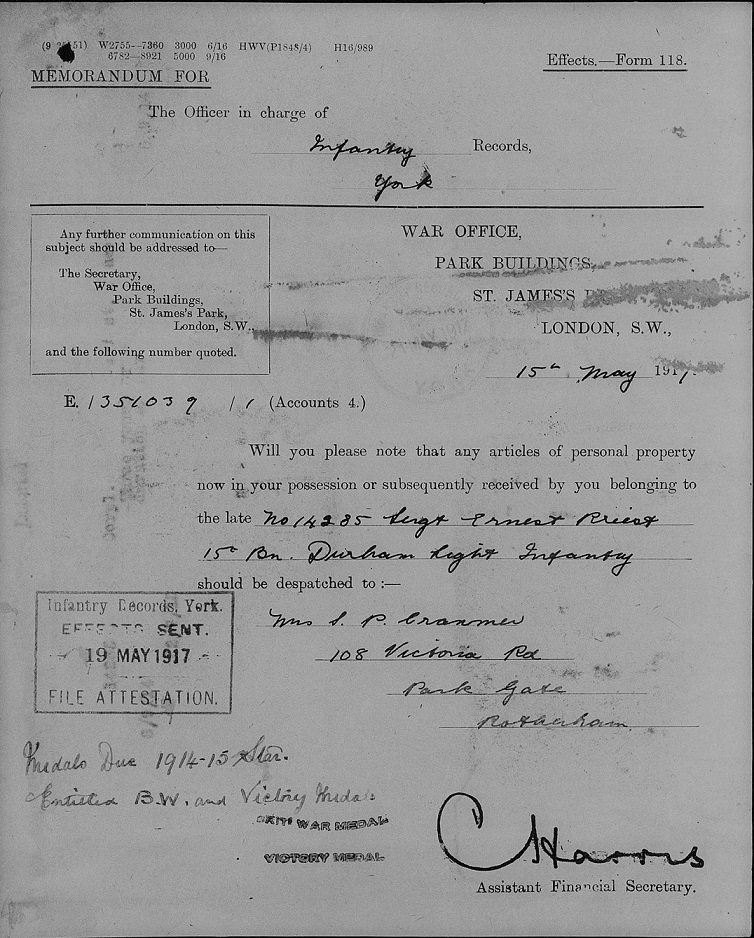 W2755—7360 3000 6/16 HWV(P1848/4) H16/989
6782—8921 5000 9/16
Effects.—Form 118.
MEMORANDUM FOR
The Officer in charge of
Infantry Records,
York
Any further communication on this
subject should be addressed to—
The Secretary,
War Office,
Park Buildings,
St. James's Park,
London, S.W.,
and the following number quoted.
WAR OFFICE,
PARK BUILDINGS,
ST. JAMES'S
LONDON, S.W.,
15th May 1917.
E. 1351039 / 1 (Accounts 4.)
Will you please note that any articles of personal property
now in your possession or subsequently received by you belonging to
the late No 14285 Sergt Ernest Priest
15th Bn. Durham Light Infantry
should be despatched to :—
Mrs S. P. Cranmer
108 Victoria Rd
Park Gate
Rotherham
Infantry Records, York.
EFFECTS SENT.
19 MAY 1917
FILE ATTESTATION.
Medals Due 1914-15 Star.
Entitled B.W. and Victory Medals
BRIT WAR MEDAL
VICTORY MEDAL
C Harris
Assistant Financial Secretary.